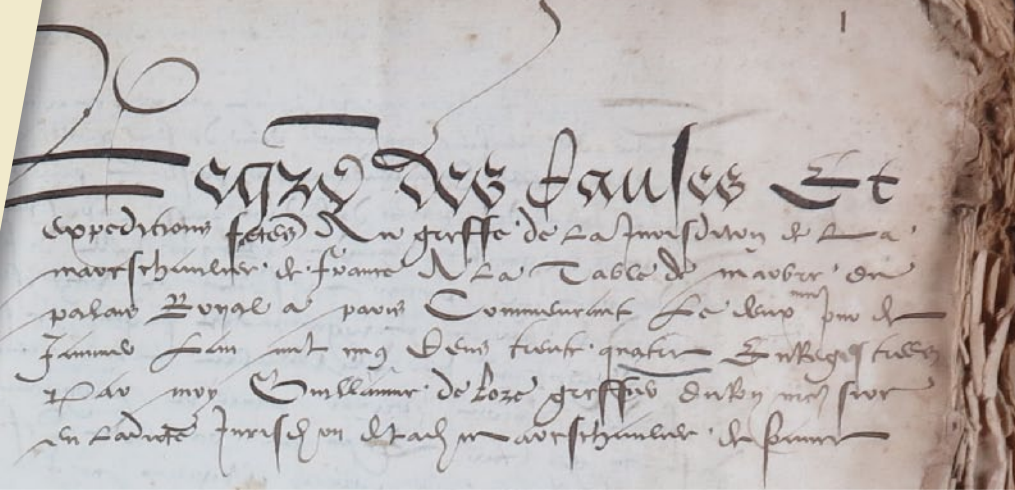 1
Regre des causes Et
expeditions fetes Au greffe de La Jurisdition de La
mareschaulcee de france A La Table de marbre du
palais Royal a paris Commencant Le deux jour de
Janvier Lan mil cens trente quatre Enregistrees
Par moy Guillaume de greffier du Roy
en Ladicte mareschaulcee de france